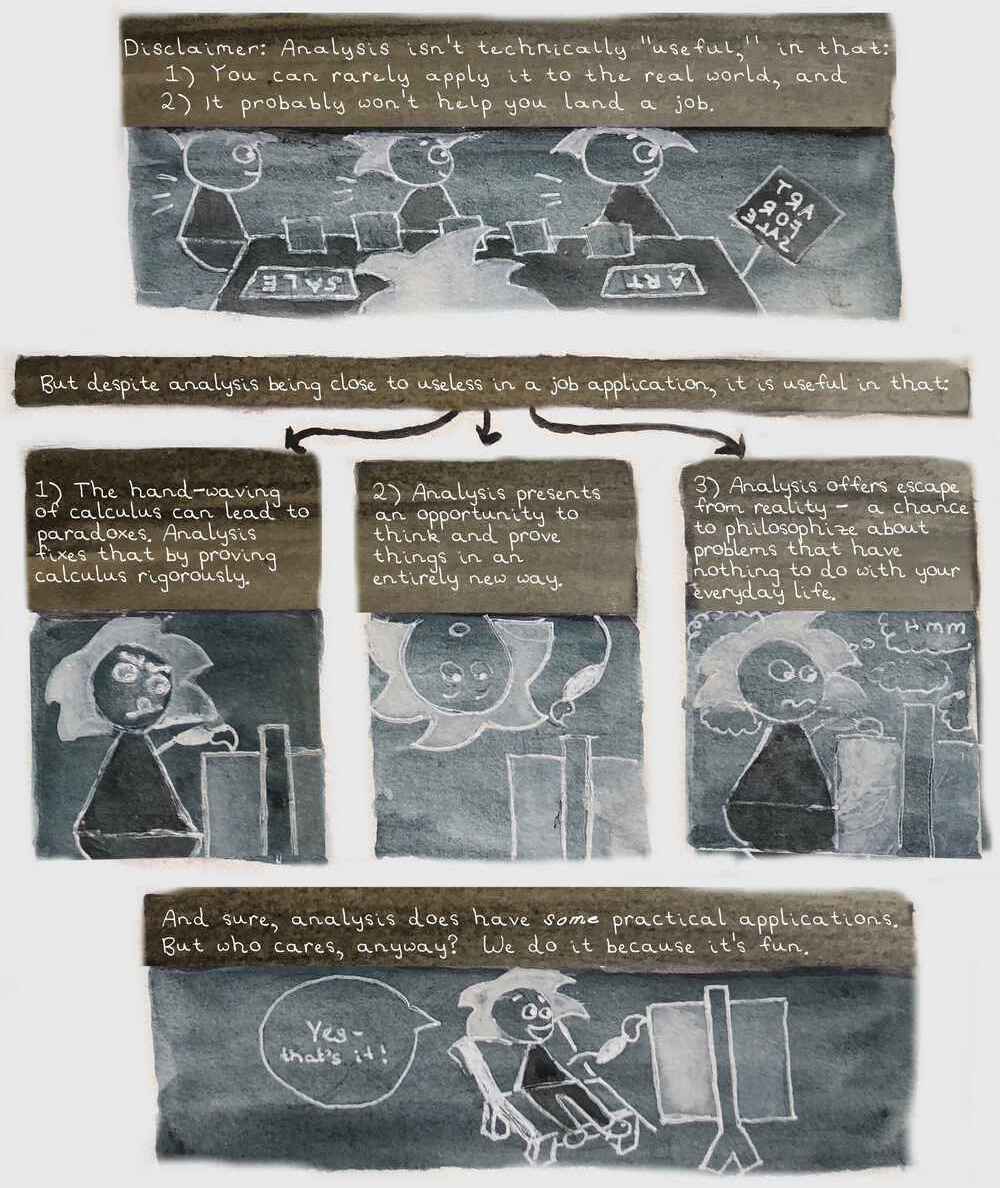 Disclaimer: Analysis isn't technically "useful," in that:
1) You can rarely apply it to the real world, and
2) It probably won't help you land a job.
ART
FORE
SALE
SALE
ART
But despite analysis being close to useless in a job application, it is useful in that:
1) The hand-waving
of calculus can lead to
paradoxes. Analysis
fixes that by proving
calculus rigorously.
2) Analysis presents
an opportunity to
think and prove
things in an
entirely new way.
3) Analysis offers escape
from reality - a chance
to philosophize about
problems that have
nothing to do with your
everyday life.
Hmm
And sure, analysis does have some practical applications.
But who cares, anyway? We do it because it's fun.
Yes-
that's it!